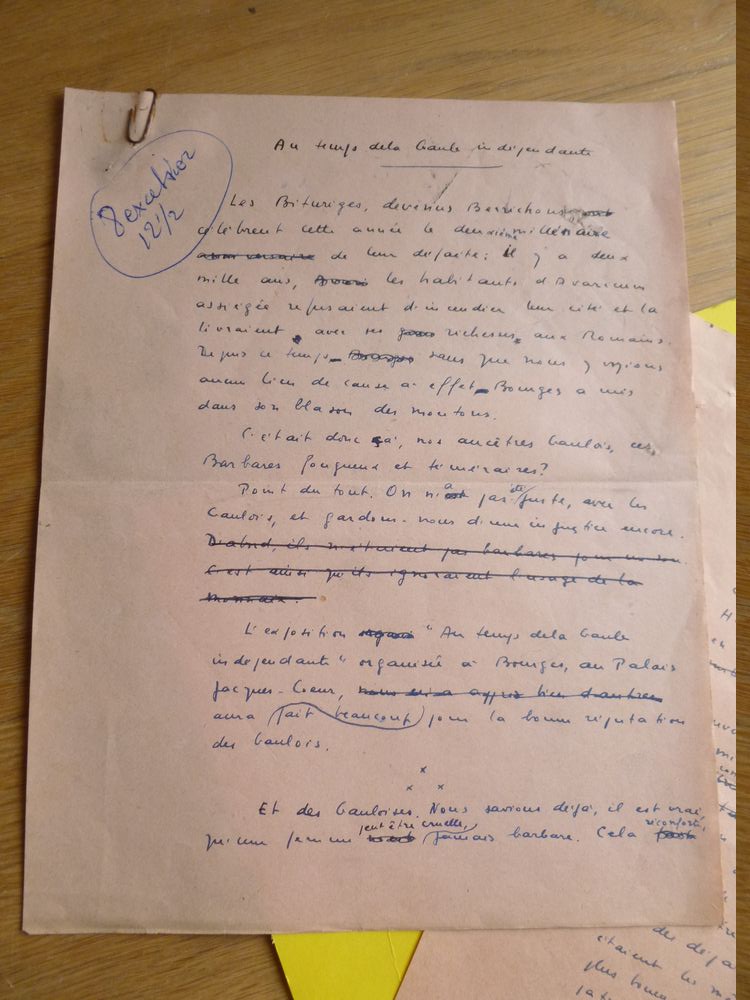 Au temps de la Gaule indépendante
8 excelsior
12 1/2
Les Bituriges, devenus Berrichons
célèbrent cette année le deuxième millénaire
anniversaire de leur défaite : il y a deux
mille ans, les habitants d'Avaricum
assiégée refusaient d'incendier leur cité et la
livraient, avec ses richesses, aux Romains.
Depuis ce temps - Bourges sans que nous y voyions
aucun lien de cause à effet - Bourges a mis
dans son blason des moutons.
C'était donc ça, nos ancêtres Gaulois, ces
Barbares fougueux et téméraires?
Point du tout. On n'a pas été juste, avec les
Gaulois, et gardons-nous d'une injustice encore.
D'abord, ils n'étaient pas barbares pour un sou.
C'est ainsi qu'ils ignoraient l'usage de la
monnaie.
L'exposition "Au temps de la Gaule
indépendante" organisée à Bourges, au Palais
Jacques-Coeur, nous en a appris bien d'autres
aura fait beaucoup pour la bonne réputation
des Gaulois.
x
x x
Et des Gauloises. Nous savions déjà, il est vrai,
qu'une femme peut être cruelle, jamais barbare. Cela réconforte,
des
étaient les
plus